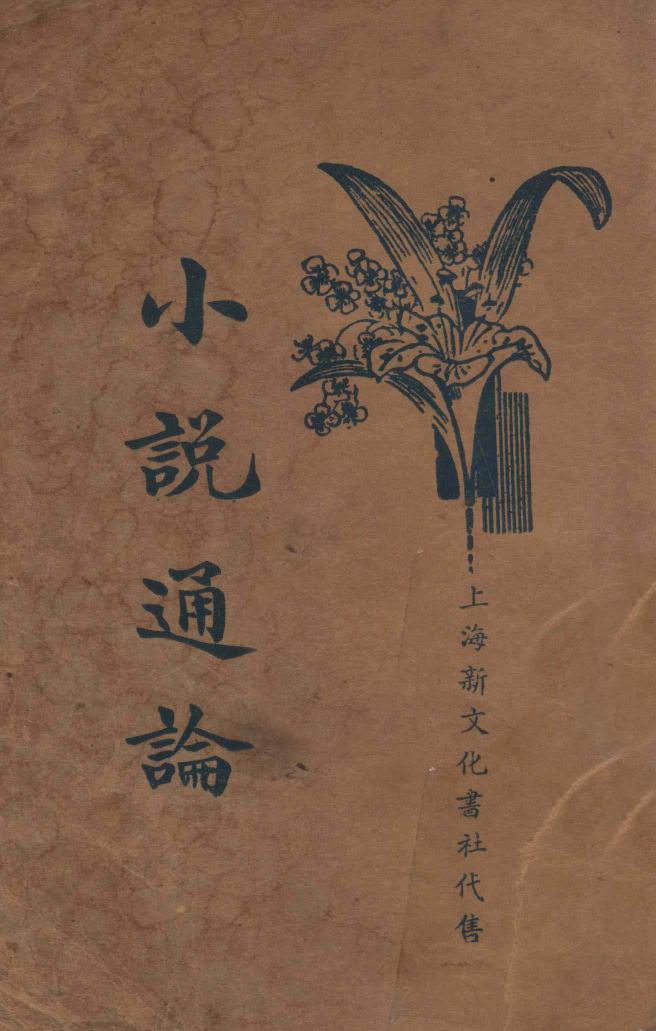 上海新文化書社代售
小説通論